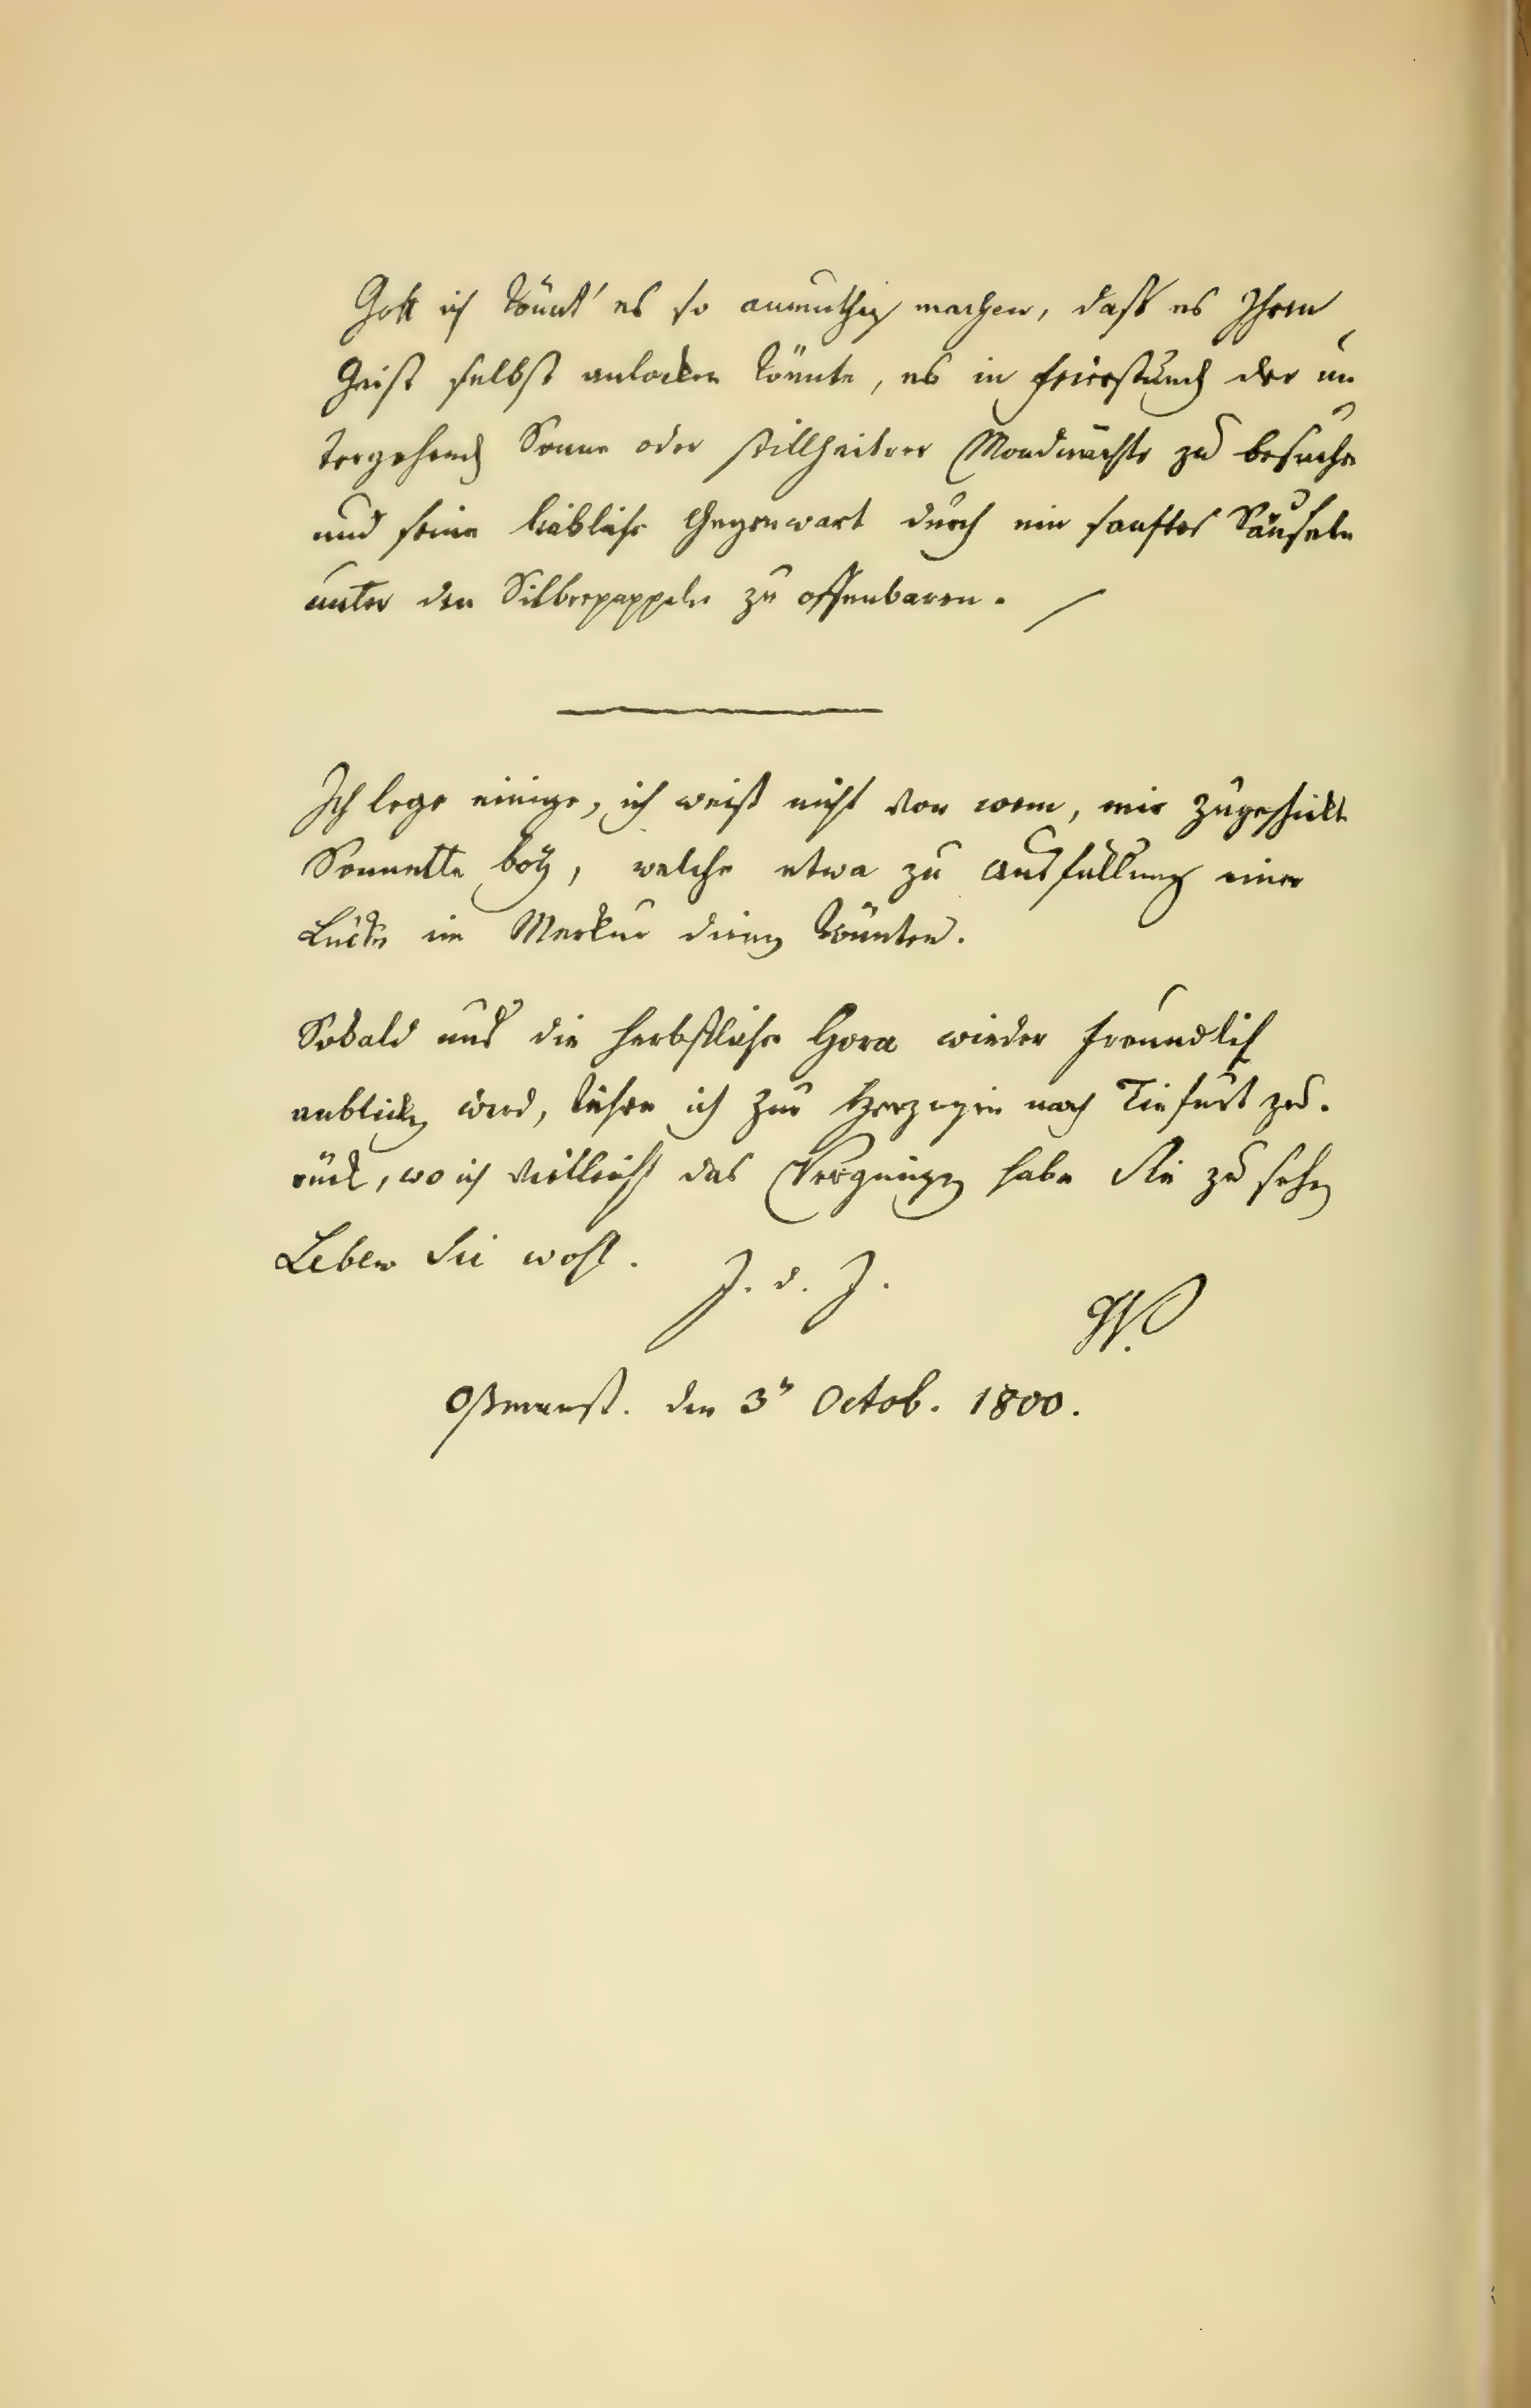 Gott ich könnt' es so anmuthig machen, daß es Ihren
Geist selbst anlocken könnte, es in Feierstund der un
tergehend Sonne oder stillheitrer Mondnächte zu besuchen
und seine liebliche Gegenwart durch ein sanftes Säuseln
unter den Silberpappeln zu offenbaren.
Ich lege einige, ich weiß nicht von wem, mir zugeschickte
Sonnette bey, welche etwa zu Ausfüllung einer
Lücke im Merkur dienen könnten.
Sobald uns die herbstliche Hora wieder freundlich
anblicken wird, kehre ich zur Herzogin nach Tiefurt zu-
rück, wo ich vielleicht das Vergnügen habe Sie zu sehen
Leben Sie wohl.
J. d. J.
W.
Oßmanst. den 3n Octob. 1800.